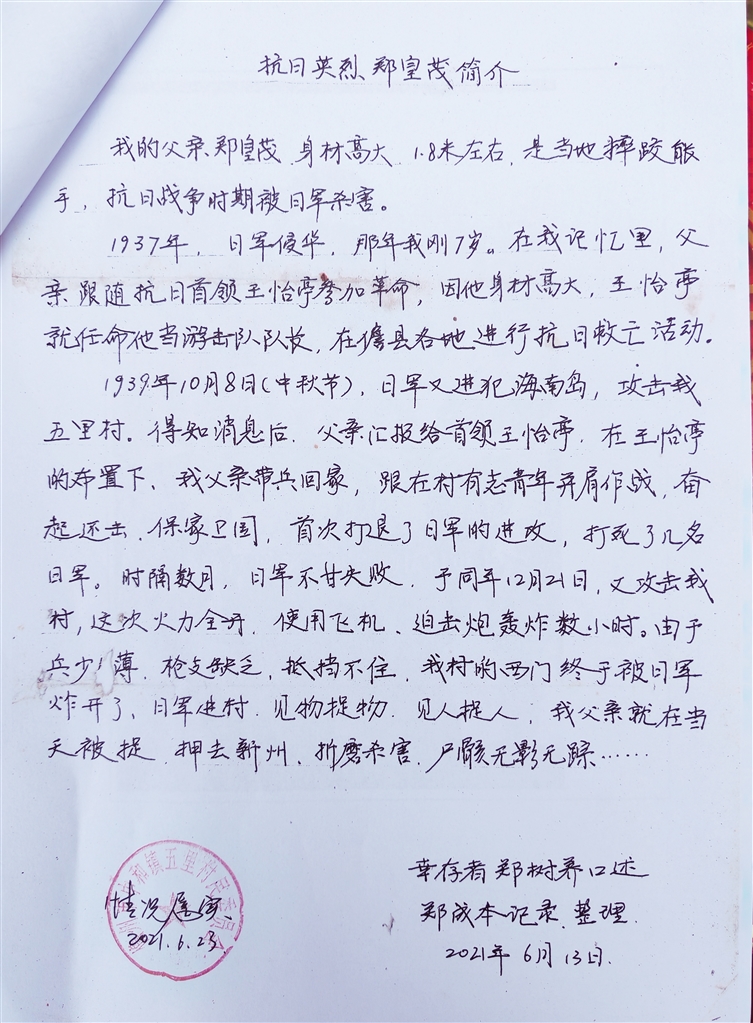 抗日英烈郑皇茂简介
我的父亲郑皇茂,身材高大,1.8米左右,是当地摔跤能
手,抗日战争时期被日军杀害。
1937年,日军侵华,那年我刚7岁。在我记忆里,父
亲跟随抗日首领王怡亭参加革命,因他身材高大,王怡亭
就任命他当游击队队长,在儋县各地进行抗日救亡活动。
1939年10月8日(中秋节),日军又进犯海南岛,攻击我
五里村。得知消息后,父亲汇报给首领王怡亭.在王怡亭
的布置下、我父亲带兵回家,跟在村有志青年并肩作战,奋
起还击,保家卫国,首次打退了日军的进攻,打死了几名
日军。时隔数月,日军不甘失败.于同年12月21日,又攻击我
村,这次火力全开.使用飞机、迫击炮轰炸数小时。由于
兵少力薄.枪支缺乏,抵挡不住,我村的西门终于被日军
炸开了、日军进村.见物捉物.见人捉人,我父亲就在当
天被捉.押去新州.折磨杀害.尸骸无影无踪……
幸存者郑树养口述
郑成本记录.整理.
2021年6月13日.
和镇五里村民委员
情况属实.
2021.6.23